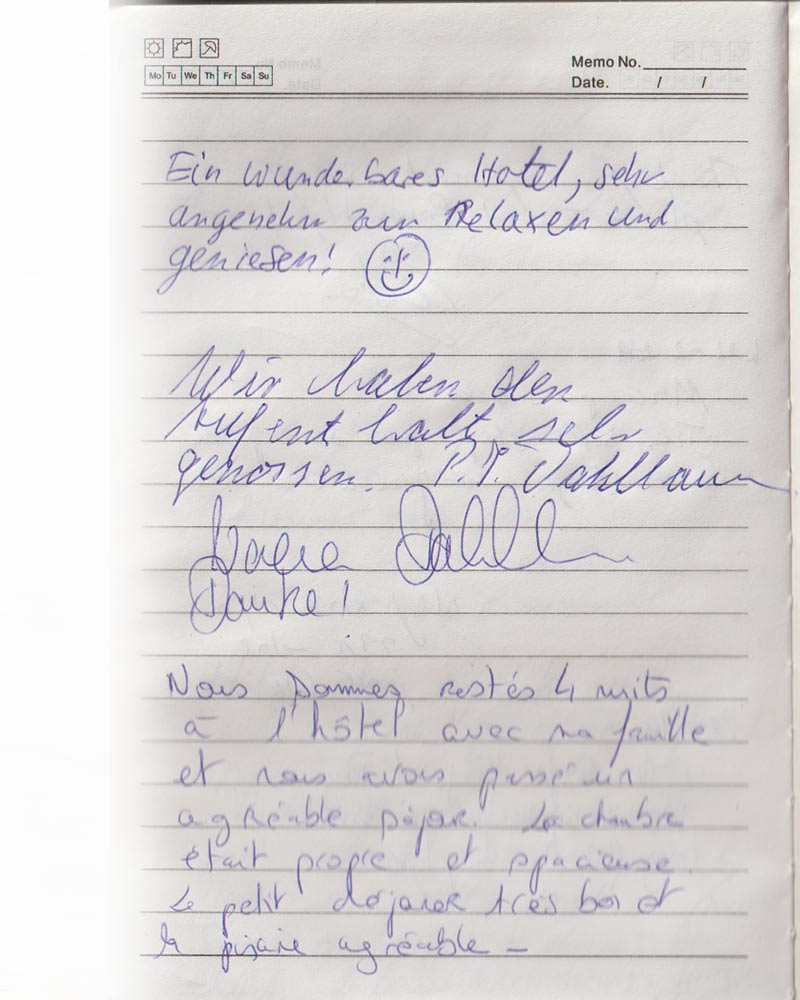 Mo Tu We Th Fr Sa Su
Memo No.
Date. / /
Ein wunderbares Hotel, sehr
angenehm zum Relaxen und
geniesen!
Wir haben den
Aufenthalt sehr
genossen. P.P. Dahllaum
Danke!
Nous sommes restés 4 nuits
à l'hôtel avec ma famille
et nous avons passé un
agréable séjour. La chambre
était propre et spacieuse.
Le petit déjeuner très bon et
la piscine agréable -